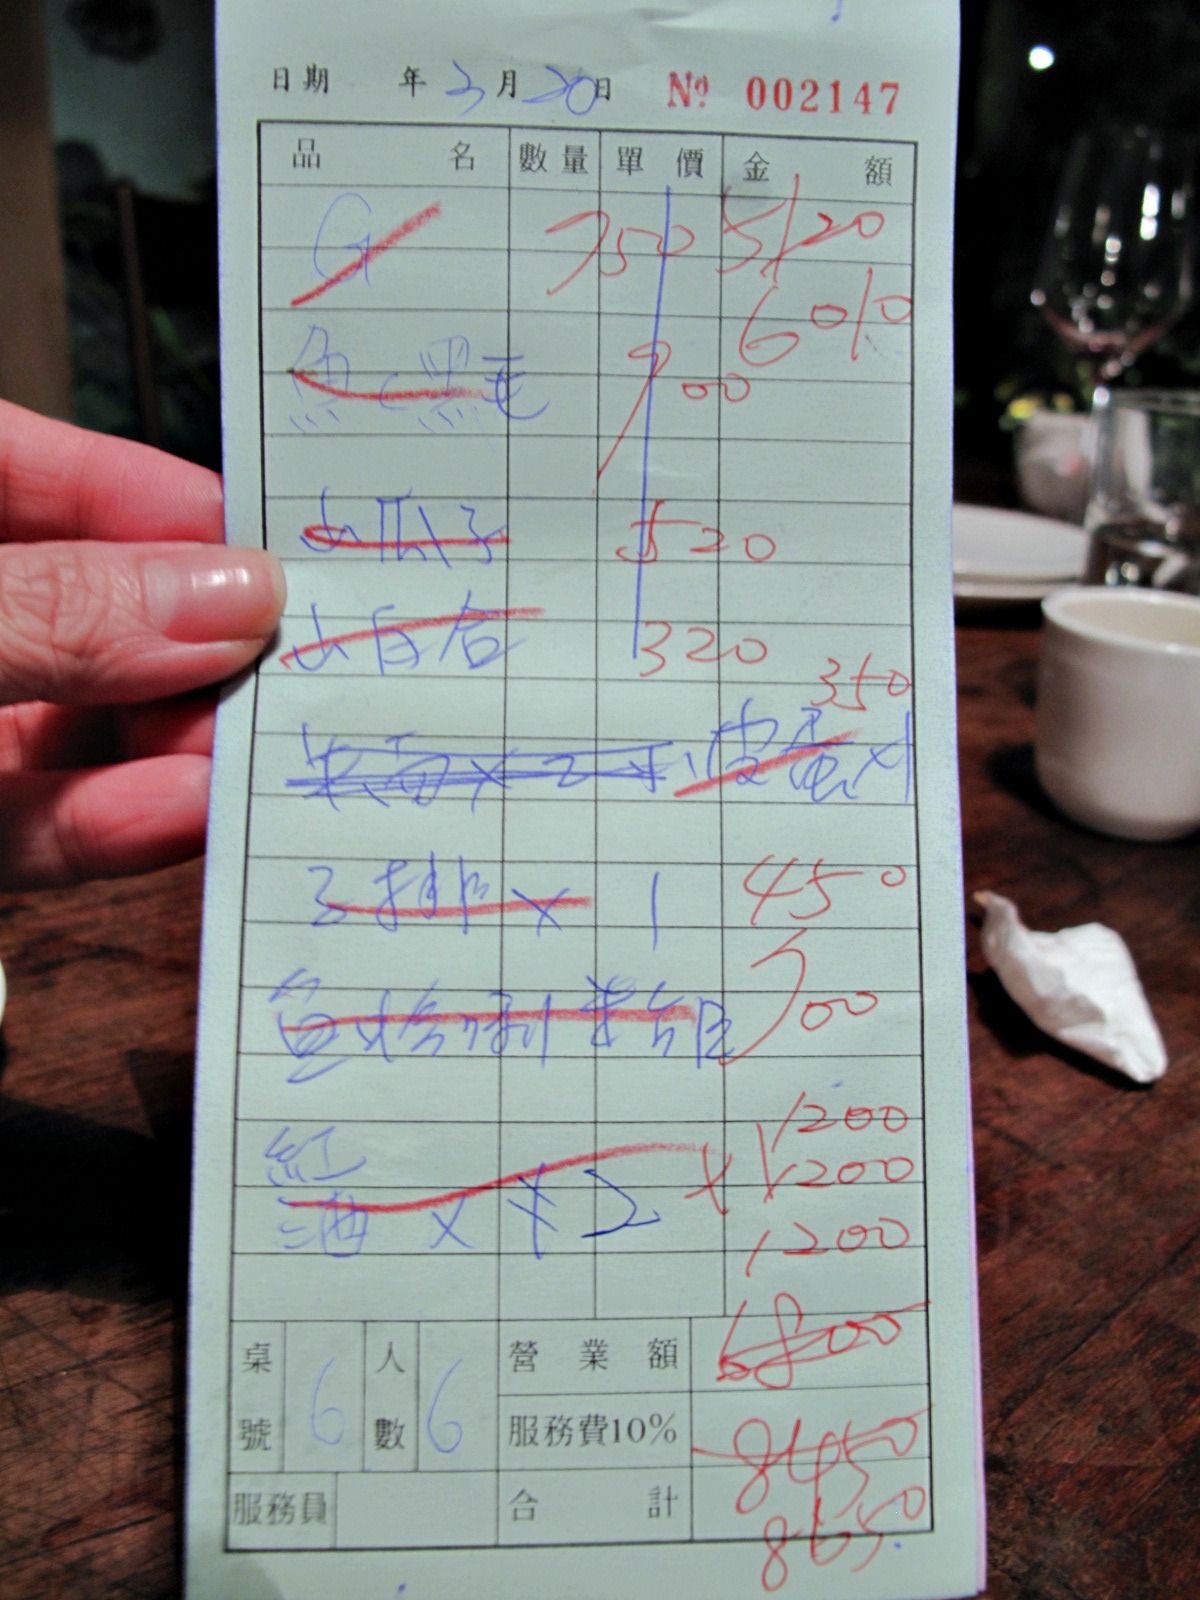 日期 年 3月20日 № 002147
品名 數量 單價 金額
G 750 5120
6010
魚 黑毛 900
山瓜子 520
山百合 320
350
x2 皮蛋x1
3排 x 1 450
魚 700
1200
紅 1200
酒 x 2 1200
桌號 6 人數 6 營業額 6800
服務費10% 8450
服務員 合計 8650